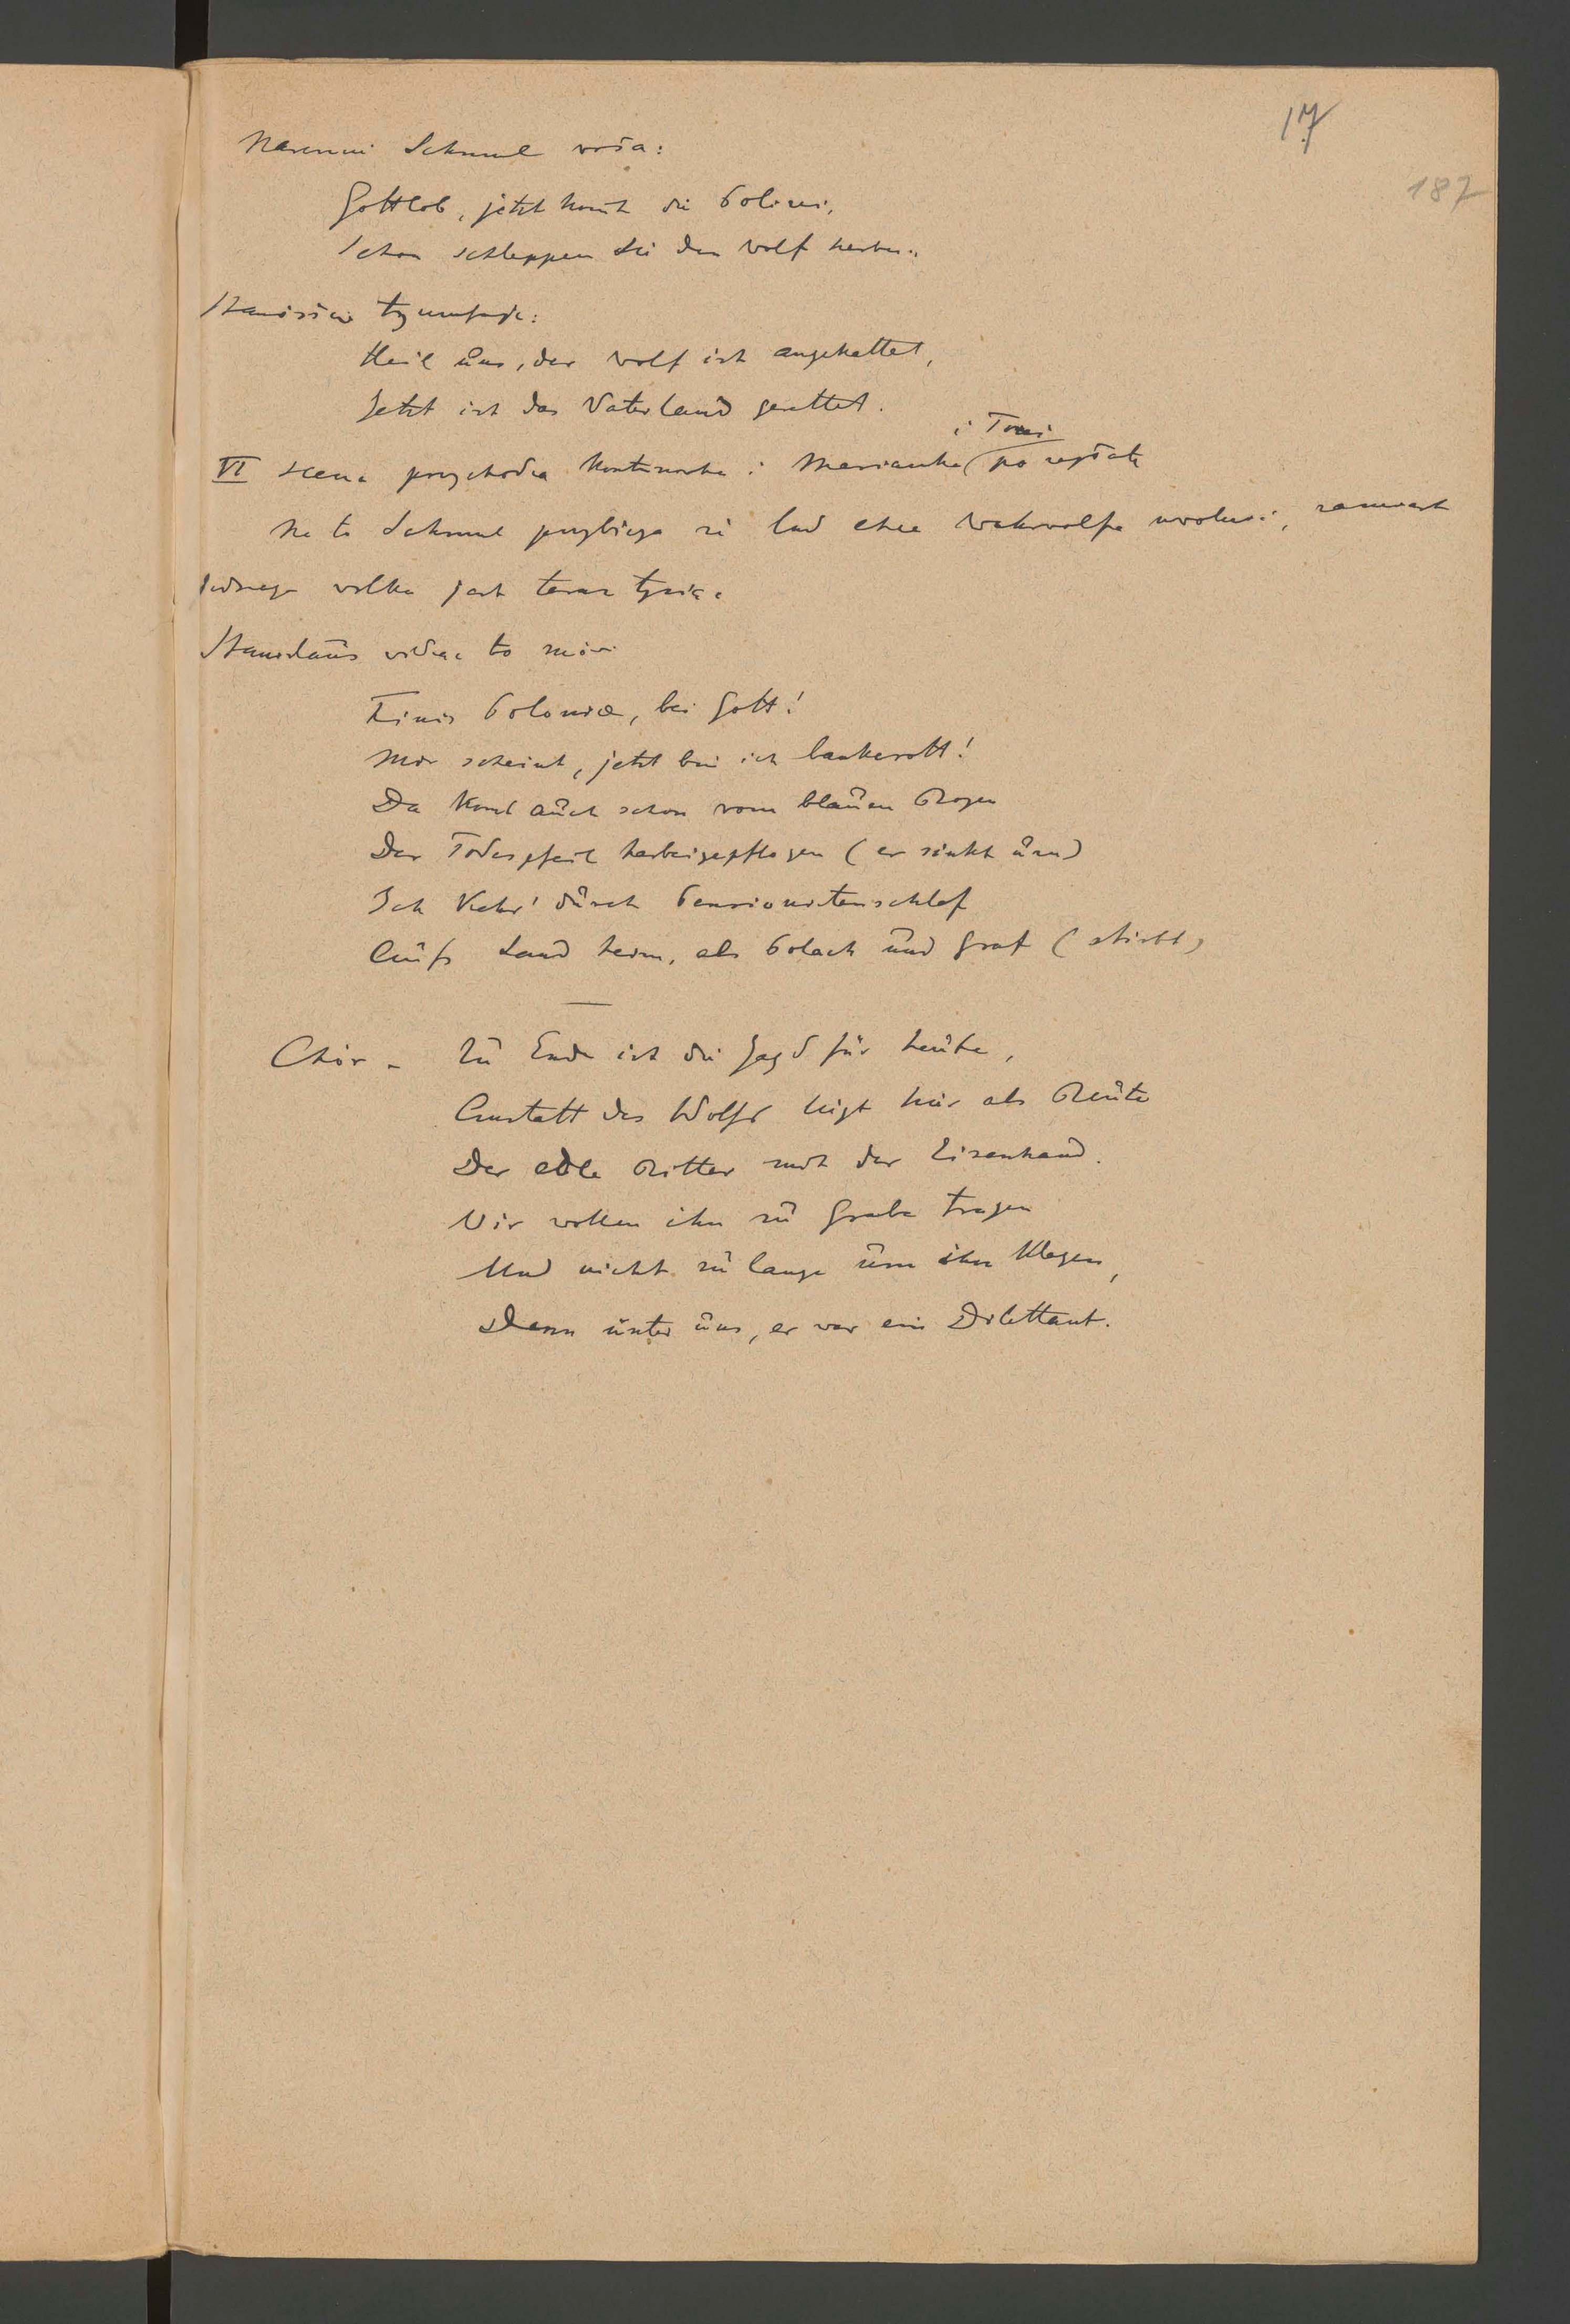 17
187
Nareszcie Schmul woła:
Gottlob, jetzt komt die Polizei,
Schon schleppen sie den Wolf herbei.
Stanisław tryumfuje:
Heil uns, der Wolf ist angekettet,
Jetzt ist das Vaterland gerettet.
i Toni
VI scena przychodza Kontuszowka i Marianka po zapłatę
Na to Schmul przybiega że lud chce Wehrwolfa uwolnić, zamiast
jednego wilka jest teraz tysiąc
Stanislaus widząc to mówi
Finis Poloniae, bei Gott!
Mir scheint, jetzt bin ich bankerott!
Da komt auch schon vom blauen Bogen
Der Todespfeil herbeigepflogen (er sinkt um)
Ich kehr' durch Pensionistenschlaf
Aufs Land heim, als Polack und Graf (stirbt)
Chór - Zu Ende ist die Jagd für heute,
Anstatt des Wolfs liegt hier als Beute
Der edle Ritter mit der Eisenhand.
Wir wollen ihn zu Grabe tragen
Und nicht zu lange um ihn klagen,
Denn unter uns, er war ein Dilettant.